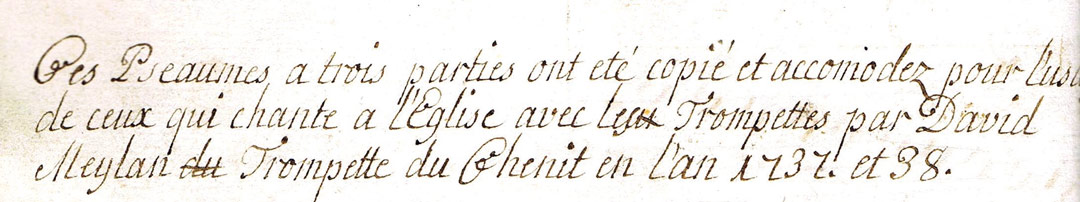 Ces Pseaumes a trois parties ont eté copïé et accomodez pour l'usa
de ceux qui chante a l'Eglise avec leur Trompettes par David
Meylan du Trompette du Chenit en l'an 1737. et 38.